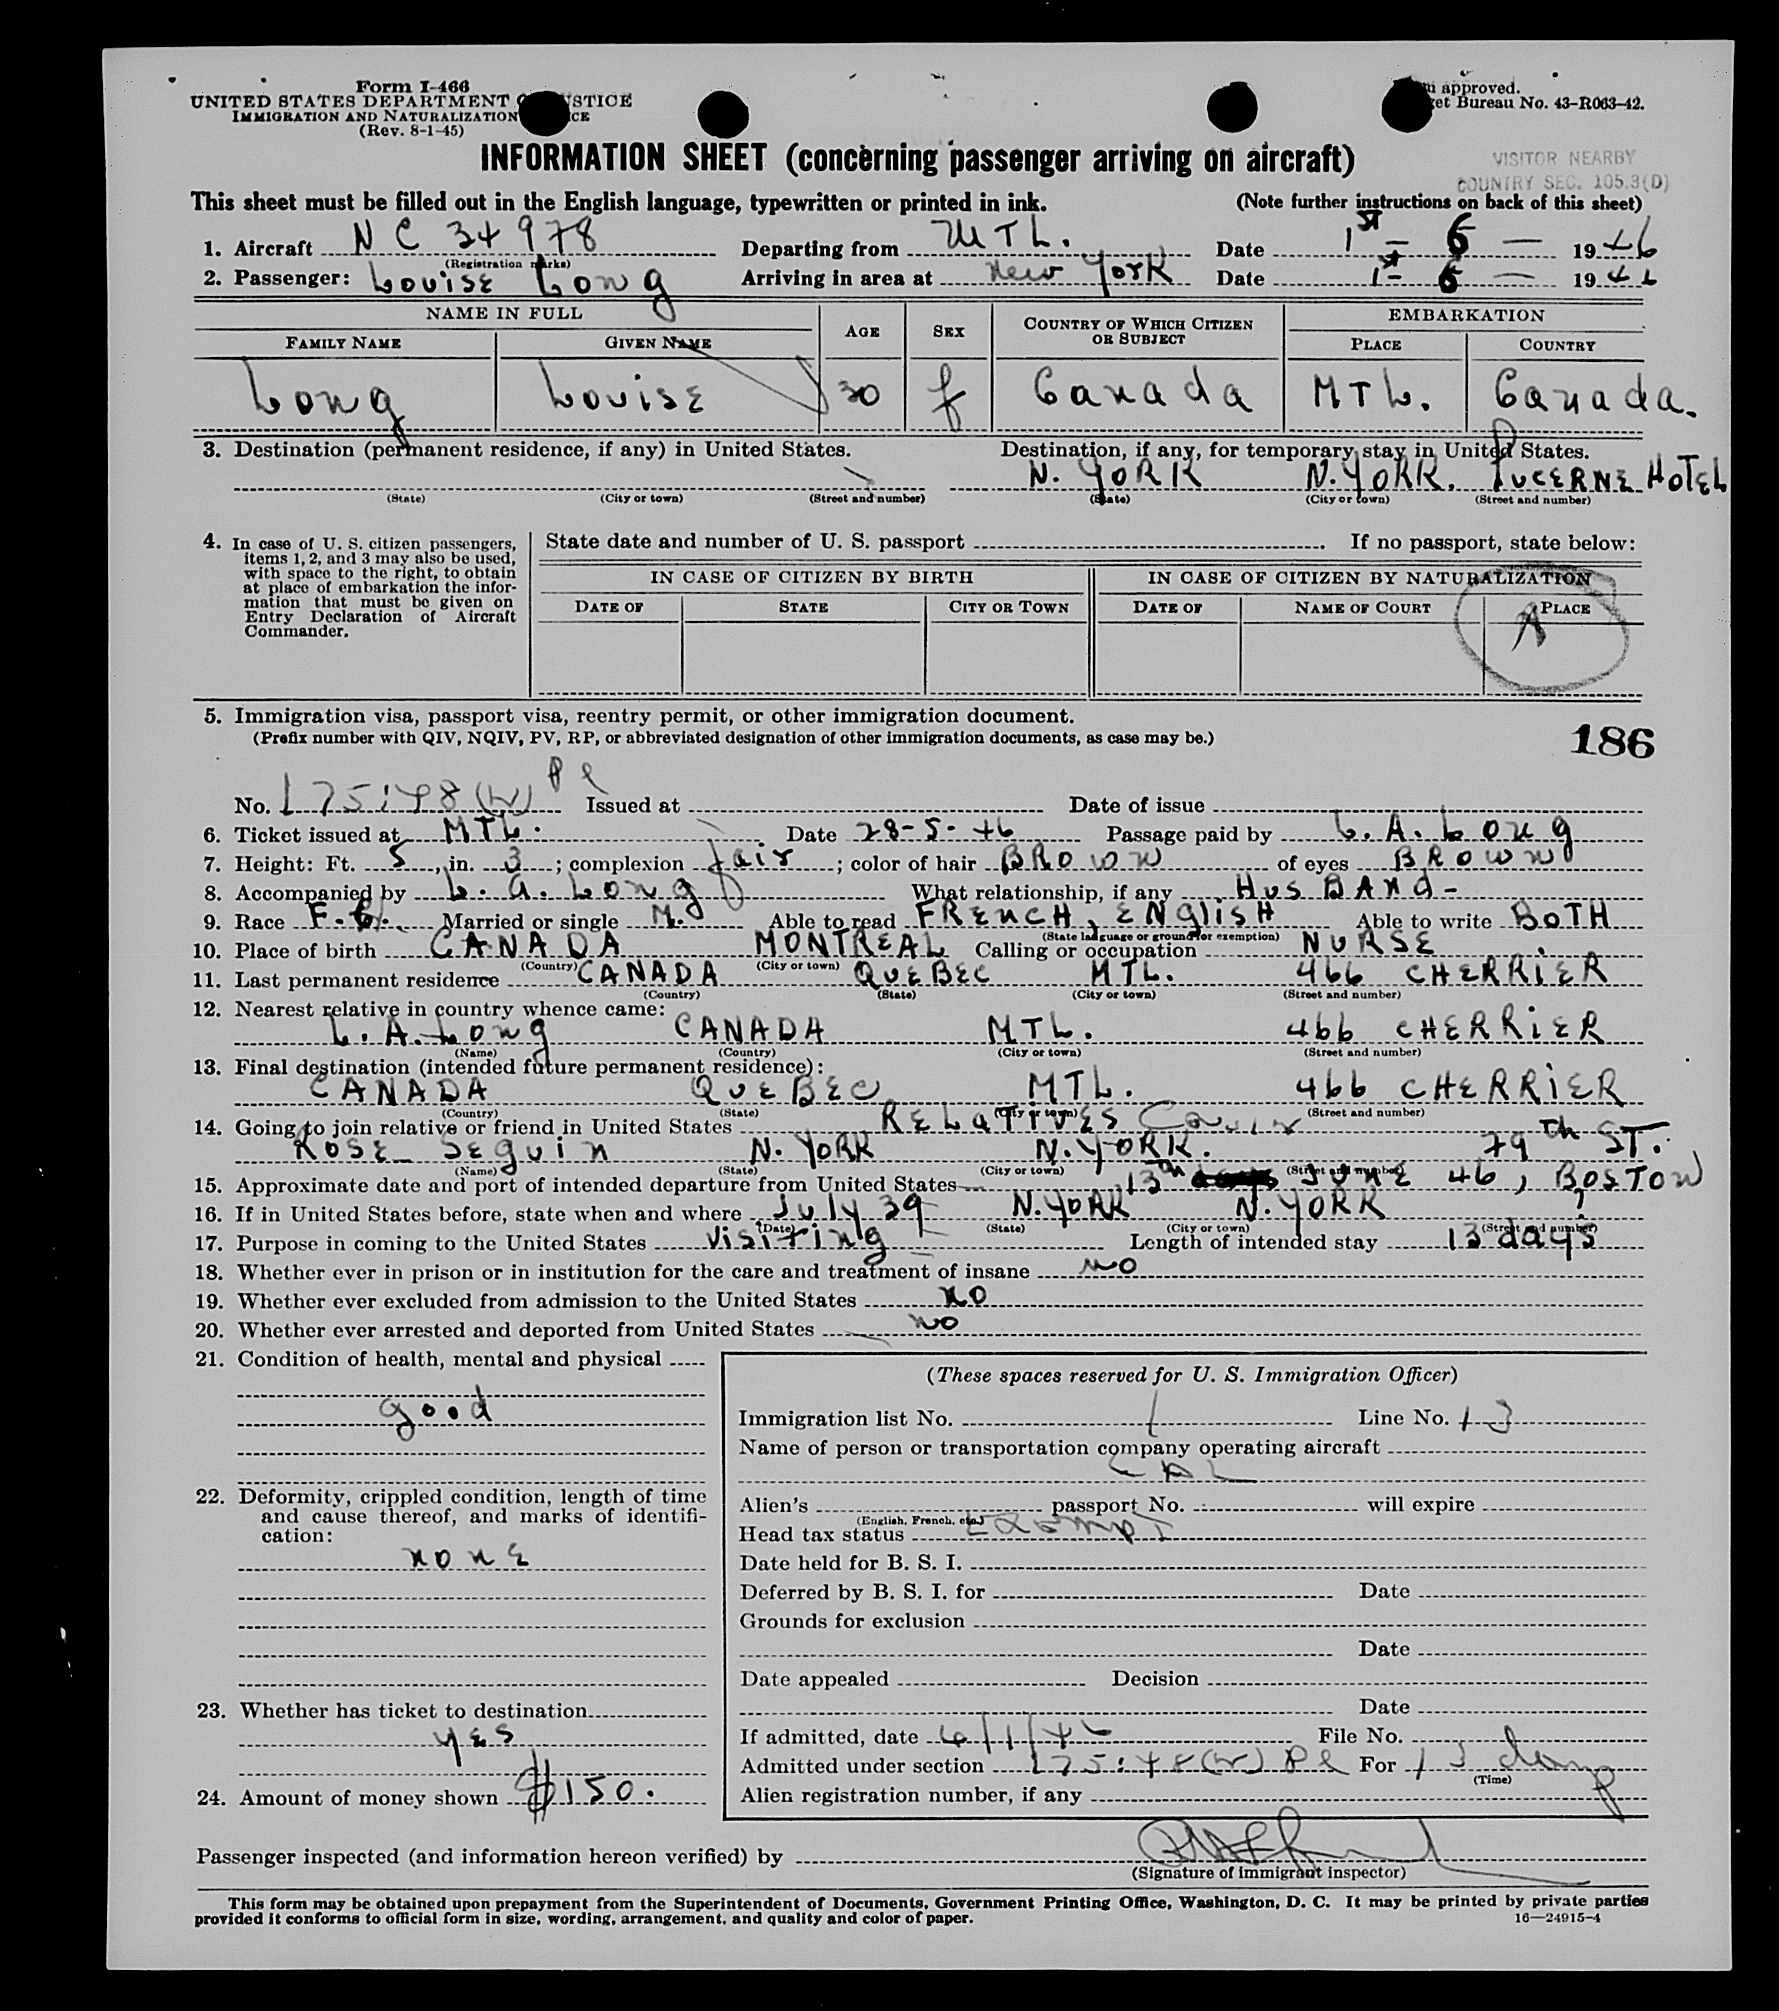 Form I-466
UNITED STATES DEPARTMENT STICE
IMMIGRATION AND NATURALIZATION CE
(Rev. 8-1-45)
approved.
et Bureau No. 43-R063-42.
INFORMATION SHEET (concerning passenger arriving on aircraft)
VISITOR NEARBY
COUNTRY SEC. 105.3(D)
This sheet must be filled out in the English language, typewritten or printed in ink. (Note further instructions on back of this sheet)
1. Aircraft NC 34978 Departing from MTL. Date 1st - 6 - 1946
(Registration marks)
2. Passenger: Louise Long Arriving in area at New York Date 1st - 6 - 1946
NAME IN FULL AGE SEX COUNTRY OF WHICH CITIZEN OR SUBJECT EMBARKATION
FAMILY NAME GIVEN NAME PLACE COUNTRY
Long Louise 30 f Canada MTL. Canada.
3. Destination (permanent residence, if any) in United States. Destination, if any, for temporary stay in United States.
N. YORK N. YORK. LUCERNE HOTEL
(State) (City or town) (Street and number) (State) (City or town) (Street and number)
4. In case of U. S. citizen passengers, items 1, 2, and 3 may also be used, with space to the right, to obtain at place of embarkation the information that must be given on Entry Declaration of Aircraft Commander.
State date and number of U. S. passport If no passport, state below:
IN CASE OF CITIZEN BY BIRTH IN CASE OF CITIZEN BY NATURALIZATION
DATE OF STATE CITY OR TOWN DATE OF NAME OF COURT PLACE
A
5. Immigration visa, passport visa, reentry permit, or other immigration document.
(Prefix number with QIV, NQIV, PV, RP, or abbreviated designation of other immigration documents, as case may be.)
186
No. 175:48(W) Pl Issued at Date of issue
6. Ticket issued at MTL. Date 28-5-46 Passage paid by L. A. Long
7. Height: Ft. 5, in. 3; complexion fair; color of hair BROWN of eyes BROWN
8. Accompanied by L. A. Long What relationship, if any HUSBAND-
9. Race F.C. Married or single M. Able to read FRENCH, ENGLISH Able to write BOTH
(State language or ground for exemption)
10. Place of birth CANADA MONTREAL Calling or occupation NURSE
(Country) (City or town)
11. Last permanent residence CANADA QUEBEC MTL. 466 CHERRIER
(Country) (State) (City or town) (Street and number)
12. Nearest relative in country whence came:
L. A. Long CANADA MTL. 466 CHERRIER
(Name) (Country) (City or town) (Street and number)
13. Final destination (intended future permanent residence):
CANADA QUEBEC MTL. 466 CHERRIER
(Country) (State) (City or town) (Street and number)
14. Going to join relative or friend in United States RELATIVES
ROSE SEGUIN N. YORK N. YORK. 79th ST.
(Name) (State) (City or town) (Street and number)
15. Approximate date and port of intended departure from United States 13th JUNE 46, BOSTON
16. If in United States before, state when and where July 39 N. YORK N. YORK
(Date) (State) (City or town) (Street and number)
17. Purpose in coming to the United States Visiting Length of intended stay 13 days
18. Whether ever in prison or in institution for the care and treatment of insane NO
19. Whether ever excluded from admission to the United States NO
20. Whether ever arrested and deported from United States NO
21. Condition of health, mental and physical
good
22. Deformity, crippled condition, length of time and cause thereof, and marks of identification:
NONE
23. Whether has ticket to destination
YES
24. Amount of money shown $150.
(These spaces reserved for U. S. Immigration Officer)
Immigration list No. 1 Line No. 13
Name of person or transportation company operating aircraft
Alien's passport No. will expire
(English, French, etc.)
Head tax status Exempt
Date held for B. S. I.
Deferred by B. S. I. for Date
Grounds for exclusion
Date
Date appealed Decision
Date
If admitted, date 6/1/46 File No.
Admitted under section 175:48(W) Pl For 13 days
(Time)
Alien registration number, if any
Passenger inspected (and information hereon verified) by
(Signature of immigrant inspector)
This form may be obtained upon prepayment from the Superintendent of Documents, Government Printing Office, Washington, D. C. It may be printed by private parties
provided it conforms to official form in size, wording, arrangement, and quality and color of paper.
16—24915-4